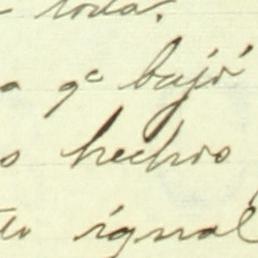 toda.
a qe bajó
s hechos
igual